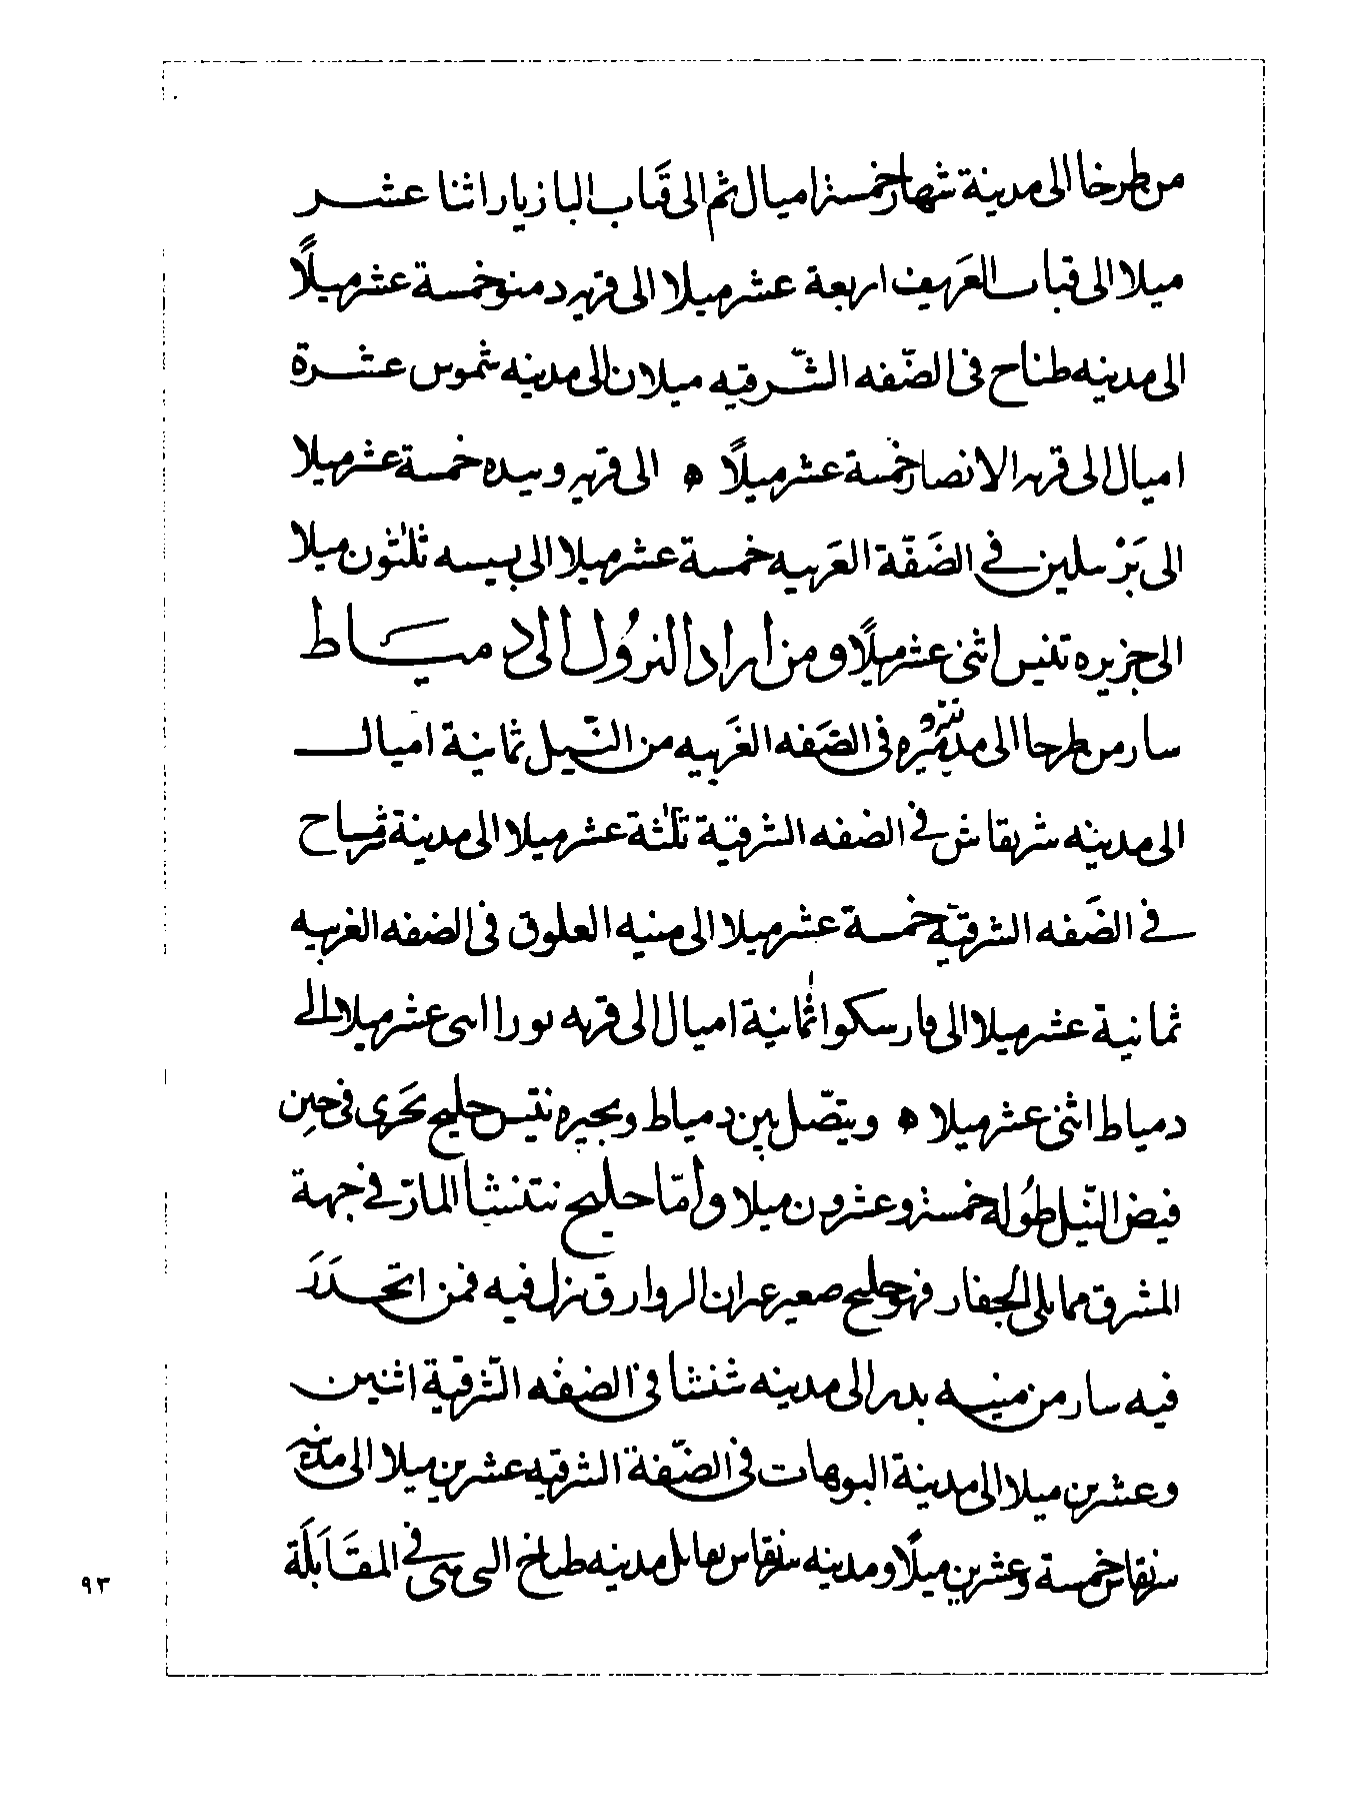 من طرخا الى مدينة شهار خمسة اميال ثم الى قباب البازيار اثنا عشر
ميلا الى قباب العريف اربعة عشر ميلا الى قريه دمنو خمسة عشر ميلًا
الى مدينه طناح فى الضّفه الشّرقيه ميلان الى مدينه شموس عشرة
اميال الى قريه الانصار خمسة عشر ميلًا ه الى قريه وبيده خمسة عشر ميلا
الى بَرْنبلين فى الضَفّة الغَربيه خمسة عشر ميلا الى بسيسه ثلثون ميلا
الى جزيره تنيس اثنى عشر ميلًا ومن اراد النزُول الى دمياط
سار من طرحا الى فى الضَفه الغَربيه من النّيل ثمانية اميال
الى مدينه شربقاش فى الضفه الشرقيّة ثلثة عشر ميلا الى مدينة شرمساح
فى الضَفه الشرقيّة خمسة عشر ميلا الى منيه العلوق فى الضفه الغربيه
ثمانية عشر ميلا الى فارسكوا ثمانية اميال الى قريه بورا اثنى عشر ميلا الى
دمياط اثنى عشر ميلا ه ويتّصل بين دمياط وبحيره تنيس خليج تَجرى فى حين
فيض النّيل طُوله خمسة وعشرون ميلا وامّا خليج تتنشا المارّ فى جهة
المشرق مما يلى الجفار فهو خليج صغير غير ان الزوارق تنزل فيه فمن اتحدَرَ
فيه سار من منيه بدر الى مدينه شنشا فى الضفه الشّرقية اثنين
وعشرين ميلا الى مدينة البوهات فى الضّفة الشرقيه عشرين ميلا الى مدينه
سنقاس خمسة وعشرين ميلًا ومدينه سنقاس تقابل مدينه طناح التى هى فى المقَابَلَة
٩٣